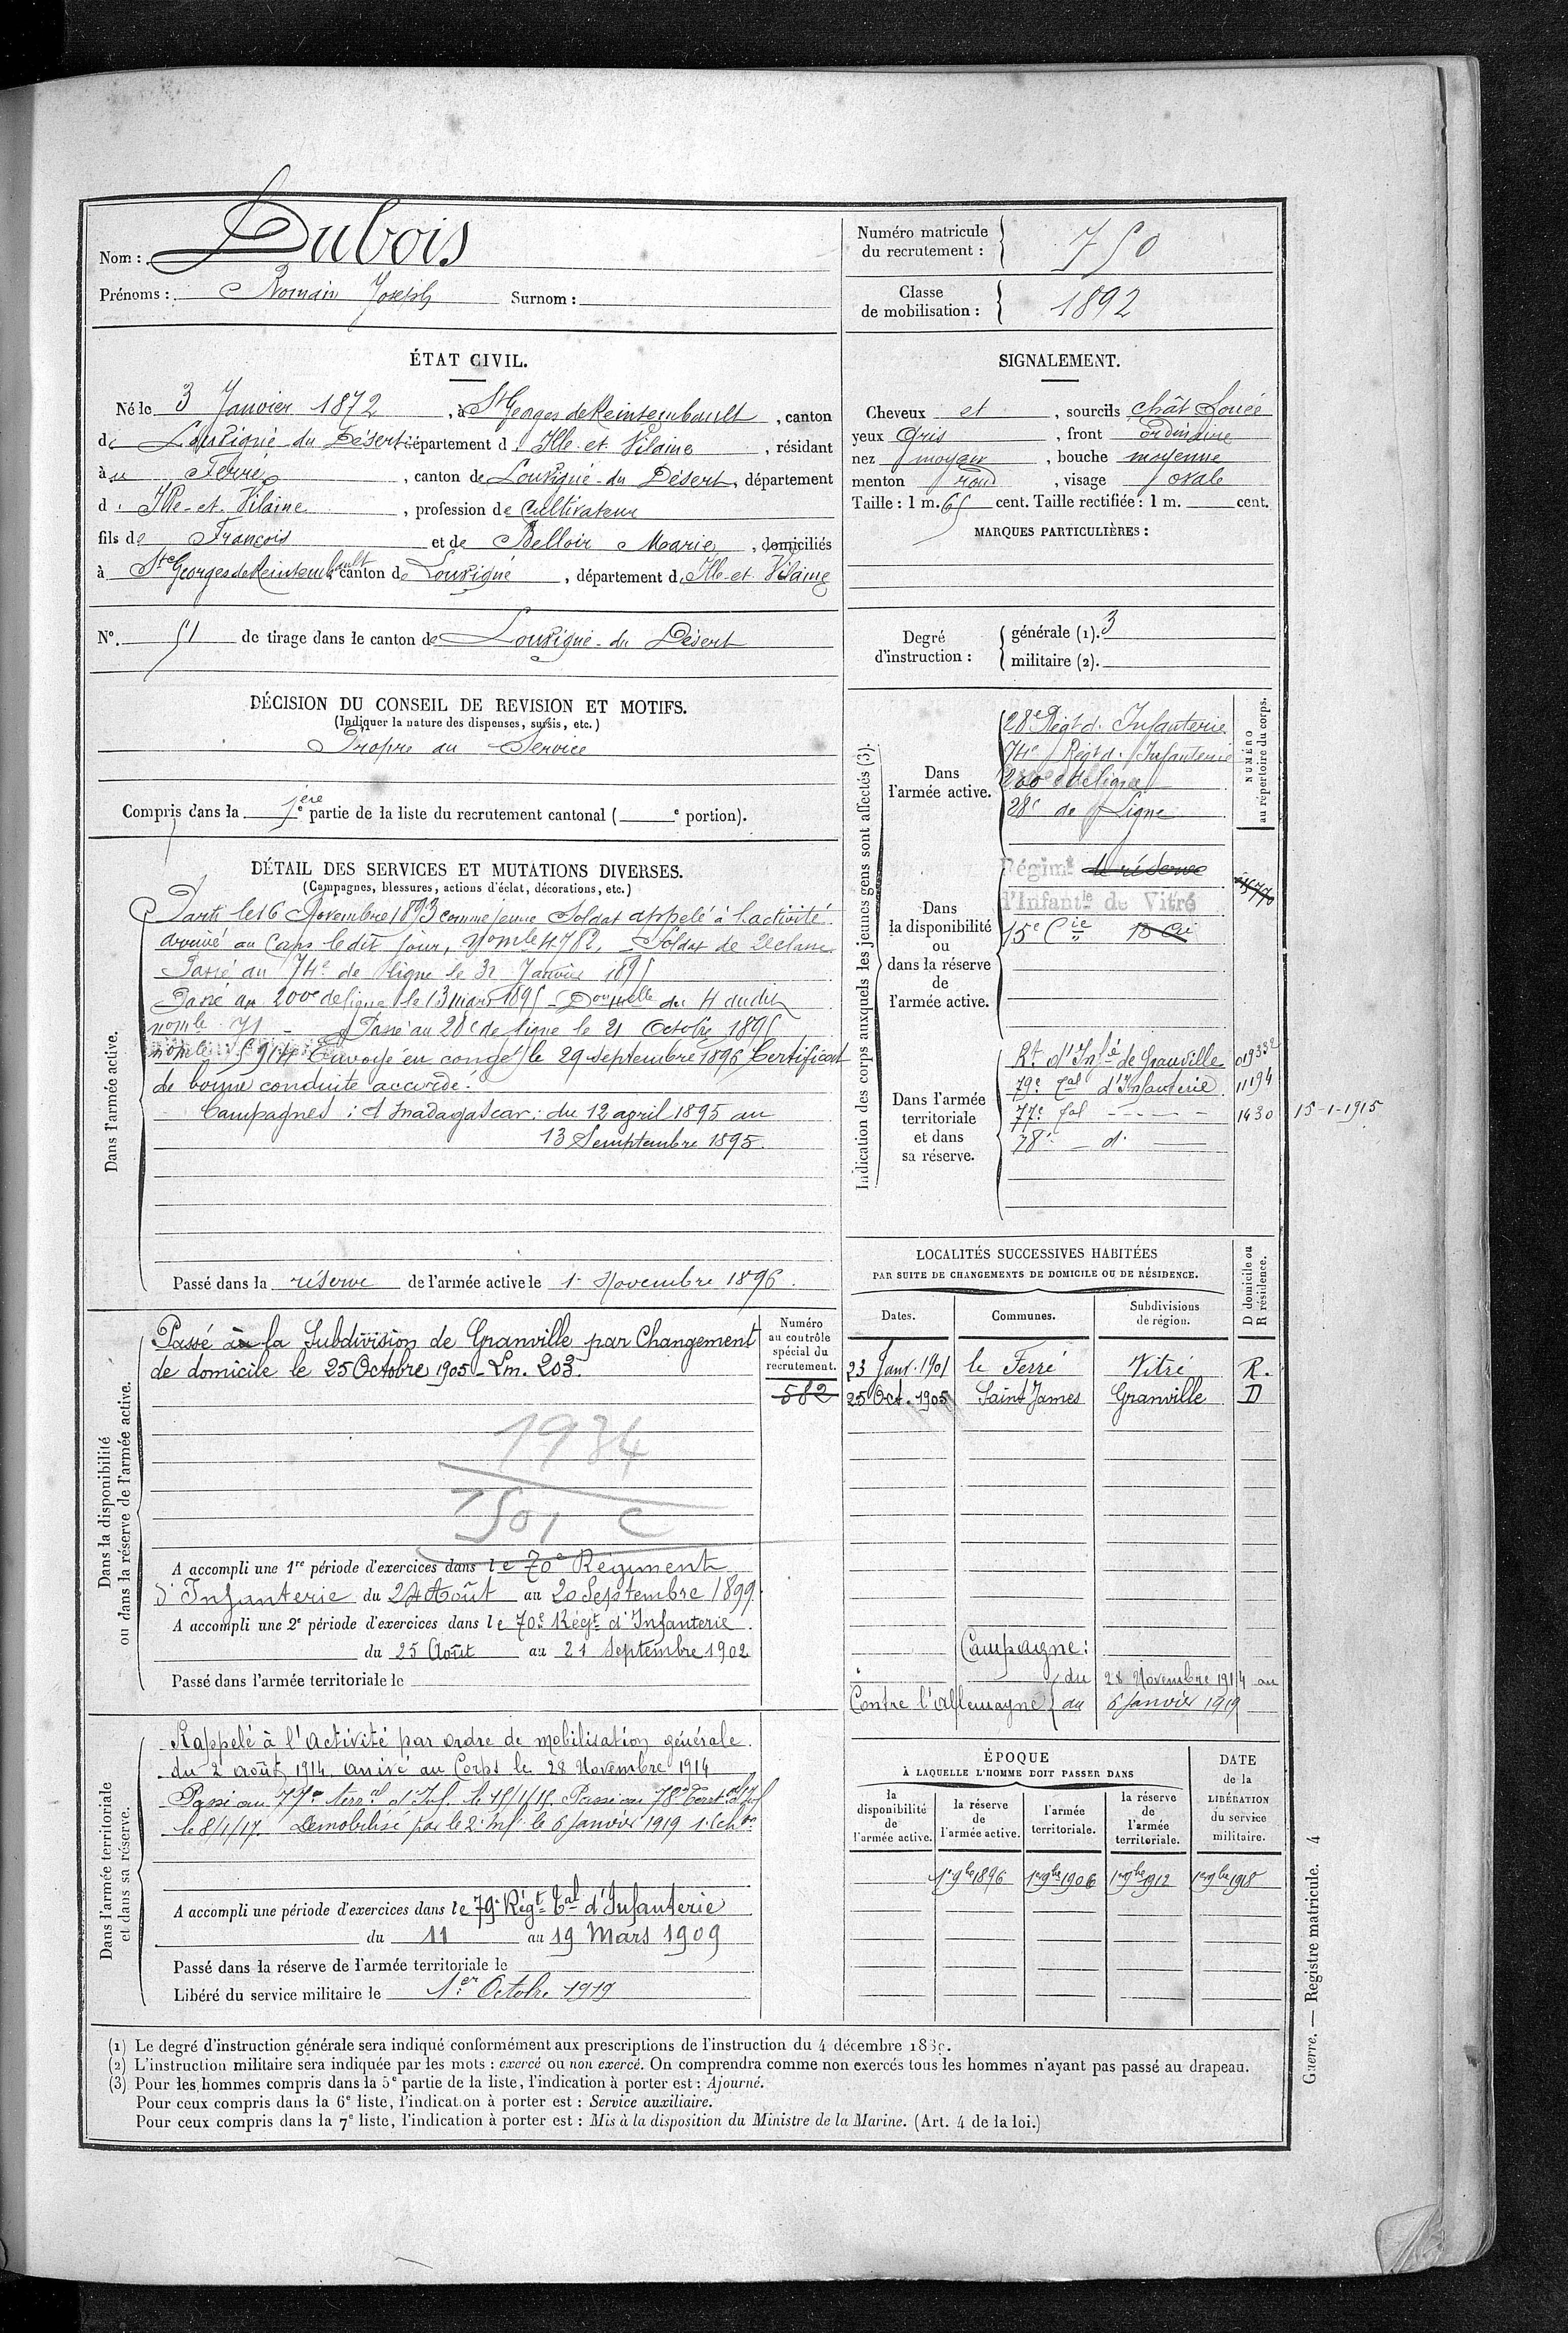 Nom : Dubois
Prénoms : Romain Joseph Surnom :
Numéro matricule
du recrutement : 750
Classe
de mobilisation : 1892
ÉTAT CIVIL.
Né le 3 Janvier 1872, à St Georges de Reintembault, canton
de Louvigné du Désert département d'Ille et Vilaine, résidant
au Ferré, canton de Louvigné-du Désert, département
d'Ille-et-Vilaine, profession de Cultivateur
fils de François et de Belloir Marie, domiciliés
à St Georges de Reintembault canton de Louvigné, département d'Ille-et-Vilaine
No. 51 de tirage dans le canton de Louvigné-du Désert
SIGNALEMENT.
Cheveux et, sourcils chât foncé
yeux Gris, front ordinaire
nez moyen, bouche moyenne
menton rond, visage ovale
Taille : 1 m. 65 cent. Taille rectifiée : 1 m. cent.
MARQUES PARTICULIÈRES :
Degré
d'instruction :
générale (1). 3
militaire (2).
DÉCISION DU CONSEIL DE REVISION ET MOTIFS.
(Indiquer la nature des dispenses, sursis, etc.)
Propre au Service
Compris dans la 1ère partie de la liste du recrutement cantonal (e portion).
DÉTAIL DES SERVICES ET MUTATIONS DIVERSES.
(Campagnes, blessures, actions d'éclat, décorations, etc.)
Dans l'armée active.
Parti le 16 Novembre 1893 comme jeune Soldat appelé à l'activité
arrivé au Corps le dit jour, No mle 4782, Soldat de 2e classe
Passé au 74e de ligne le 31 Janvier 1895
Passé au 200e de ligne le 13 mars 1895 du 4 dudit
No mle 71 - Passé au 28e de ligne le 21 Octobre 1895
No mle 5914 Envoyé en congé le 29 septembre 1896 Certificat
de bonne conduite accordé.
Campagnes : à Madagascar : du 12 april 1895 au
13 Semptembre 1895.
Passé dans la réserve de l'armée active le 1er Novembre 1896.
Indication des corps auxquels les jeunes gens sont affectés (3).
NUMÉRO
au répertoire du corps.
Dans
l'armée active.
28e Régt d'Infanterie
74e Régt d'Infanterie
200e de ligne
28e de Ligne
Dans
la disponibilité
ou
dans la réserve
de
l'armée active.
Régimt de réserve
d'Infantie de Vitré
15e Cie 15 Cie
Dans l'armée
territoriale
et dans
sa réserve.
Rt d'Infie de Granville 019332
79e Tal d'Infanterie 11194
77e Tal - - - 1430 15-1-1915
78e - d°
LOCALITÉS SUCCESSIVES HABITÉES
PAR SUITE DE CHANGEMENTS DE DOMICILE OU DE RÉSIDENCE.
D domicile ou
R résidence.
Dates. Communes. Subdivisions
de région.
23 Janv. 1901 le Ferré Vitré R.
25 Oct. 1905 Saint James Granville D
Campagne :
Contre l'Allemagne du 28 Novembre 1914 au
au 6 Janvier 1919
Dans la disponibilité
ou dans la réserve de l'armée active.
Numéro
au contrôle
spécial du
recrutement.
582
Passé à la Subdivision de Granville par Changement
de domicile le 25 Octobre 1905 - Lm. 203.
1934
1501 C
A accompli une 1re période d'exercices dans le 70e Régiment
d'Infanterie du 24 Août au 20 Septembre 1899.
A accompli une 2e période d'exercices dans le 70e Régt d'Infanterie
du 25 Août au 21 Septembre 1902
Passé dans l'armée territoriale le
Dans l'armée territoriale
et dans sa réserve.
Rappelé à l'activité par ordre de mobilisation générale
du 2 août 1914 arrivé au Corps le 28 Novembre 1914
Passé au 77e terral d'Inf. le 15/1/15. Passé au 78e Terral d'Inf
le 8/1/17. Démobilisé par le 2e Inf le 6 Janvier 1919 1e Echon
A accompli une période d'exercices dans le 79e Régt Tal d'Infanterie
du 11 au 19 Mars 1909
Passé dans la réserve de l'armée territoriale le
Libéré du service militaire le 1er Octobre 1919
ÉPOQUE
À LAQUELLE L'HOMME DOIT PASSER DANS
la
disponibilité
de
l'armée active.
la réserve
de
l'armée active.
l'armée
territoriale.
la réserve
de
l'armée
territoriale.
DATE
de la
LIBÉRATION
du service
militaire.
1er 9bre 1896 1er 9bre 1906 1er 9bre 1912 1er 9bre 1918
(1) Le degré d'instruction générale sera indiqué conformément aux prescriptions de l'instruction du 4 décembre
(2) L'instruction militaire sera indiquée par les mots : exercé ou non exercé. On comprendra comme non exercés tous les hommes n'ayant pas passé au drapeau.
(3) Pour les hommes compris dans la 5e partie de la liste, l'indication à porter est : Ajourné.
Pour ceux compris dans la 6e liste, l'indication à porter est : Service auxiliaire.
Pour ceux compris dans la 7e liste, l'indication à porter est : Mis à la disposition du Ministre de la Marine. (Art. 4 de la loi.)
Guerre. — Registre matricule. 4